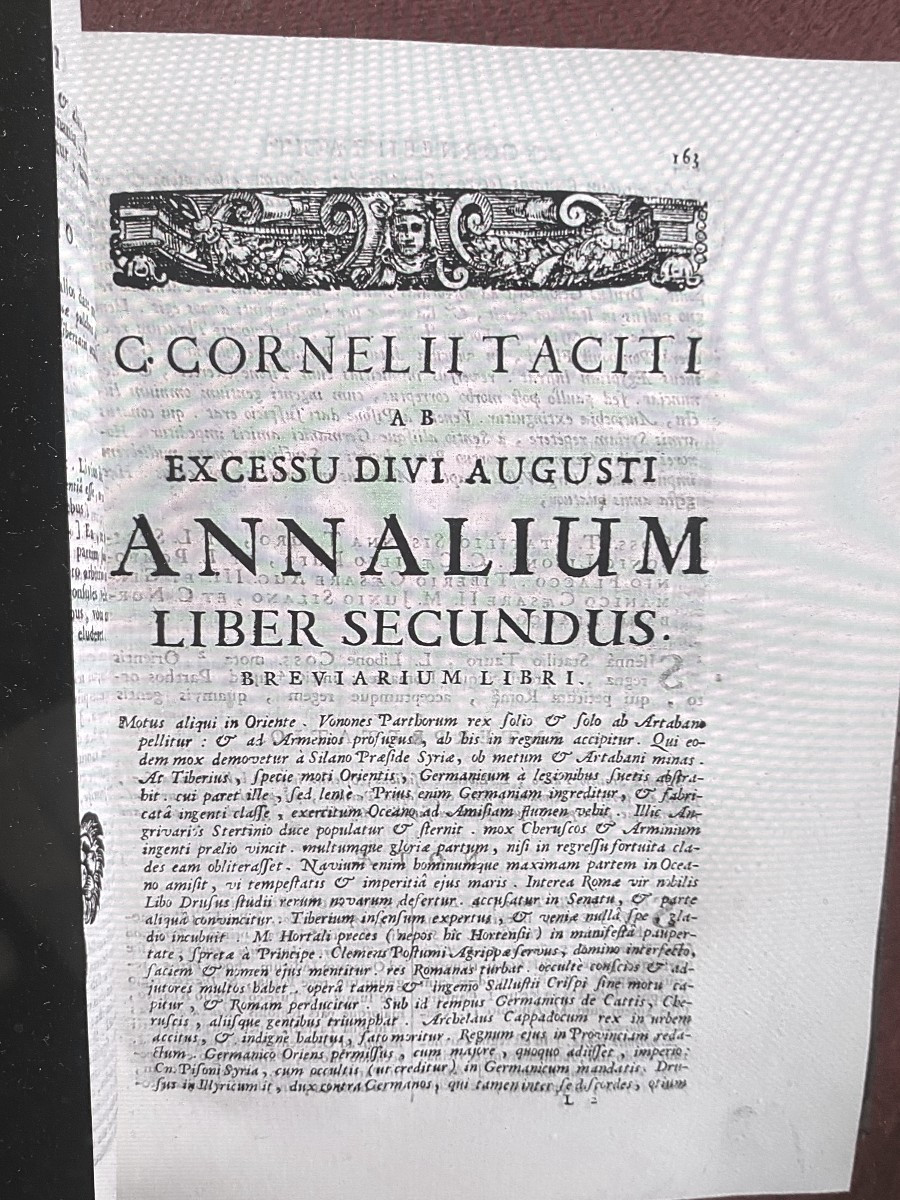 163
C. CORNELII TACITI
AB
EXCESSU DIVI AUGUSTI
ANNALIUM
LIBER SECUNDUS.
BREVIARIUM LIBRI.
Motus aliqui in Oriente. Vonones Parthorum rex ſolio & ſolo ab Artabano
pellitur: & ad Armenios profugus, ab his in regnum accipitur. Qui eo-
dem mox demovetur à Silano Præſide Syriæ, ob metum & Artabani minas.
At Tiberius, ſpecie moti Orientis, Germanicum à legionibus ſuetis abſtra-
hit. cui paret ille, ſed lente. Prius enim Germaniam ingreditur, & fabri-
catâ ingenti claſſe, exercitum Oceano ad Amiſiam flumen vehit. Illic An-
grivarios Stertinio duce populatur & ſternit. mox Cheruſcos & Arminium
ingenti prælio vincit. multumque gloriæ partum, niſi in regreſſu fortuita cla-
des eam obliteraſſet. Navium enim hominumque maximam partem in Ocea-
no amiſit, vi tempeſtatis & imperitiâ ejus maris. Interea Romæ vir nobilis
Libo Druſus ſtudii rerum novarum defertur. accuſatur in Senatu, & parte
aliquâ convincitur. Tiberium infenſum expertus, & veniæ nulla ſpe, gla-
dio incubuit. M. Hortali preces (nepos hic Hortenſii) in manifeſta pauper-
tate, ſpretæ à Principe. Clemens Poſtumi Agrippæ ſervus, domino interfecto,
faciem & nomen ejus mentitur. res Romanas turbat. occulte conſcios & ad-
jutores multos habet. operâ tamen & ingenio Salluſtii Criſpi ſine motu ca-
pitur, & Romam perducitur. Sub id tempus Germanicus de Cattis, Che-
ruſcis, aliiſque gentibus triumphat. Archelaus Cappadocum rex in urbem
accitus, & indigne habitus, fato moritur. Regnum ejus in Provinciam reda-
ctum. Germanico Oriens permiſſus, cum majore, quoquo adiiſſet, imperio:
Cn. Piſoni Syria, cum occultis (ut creditur) in Germanicum mandatis. Dru-
ſus in Illyricum it, dux contra Germanos, qui tamen inter ſe diſcordes, otium
L 2